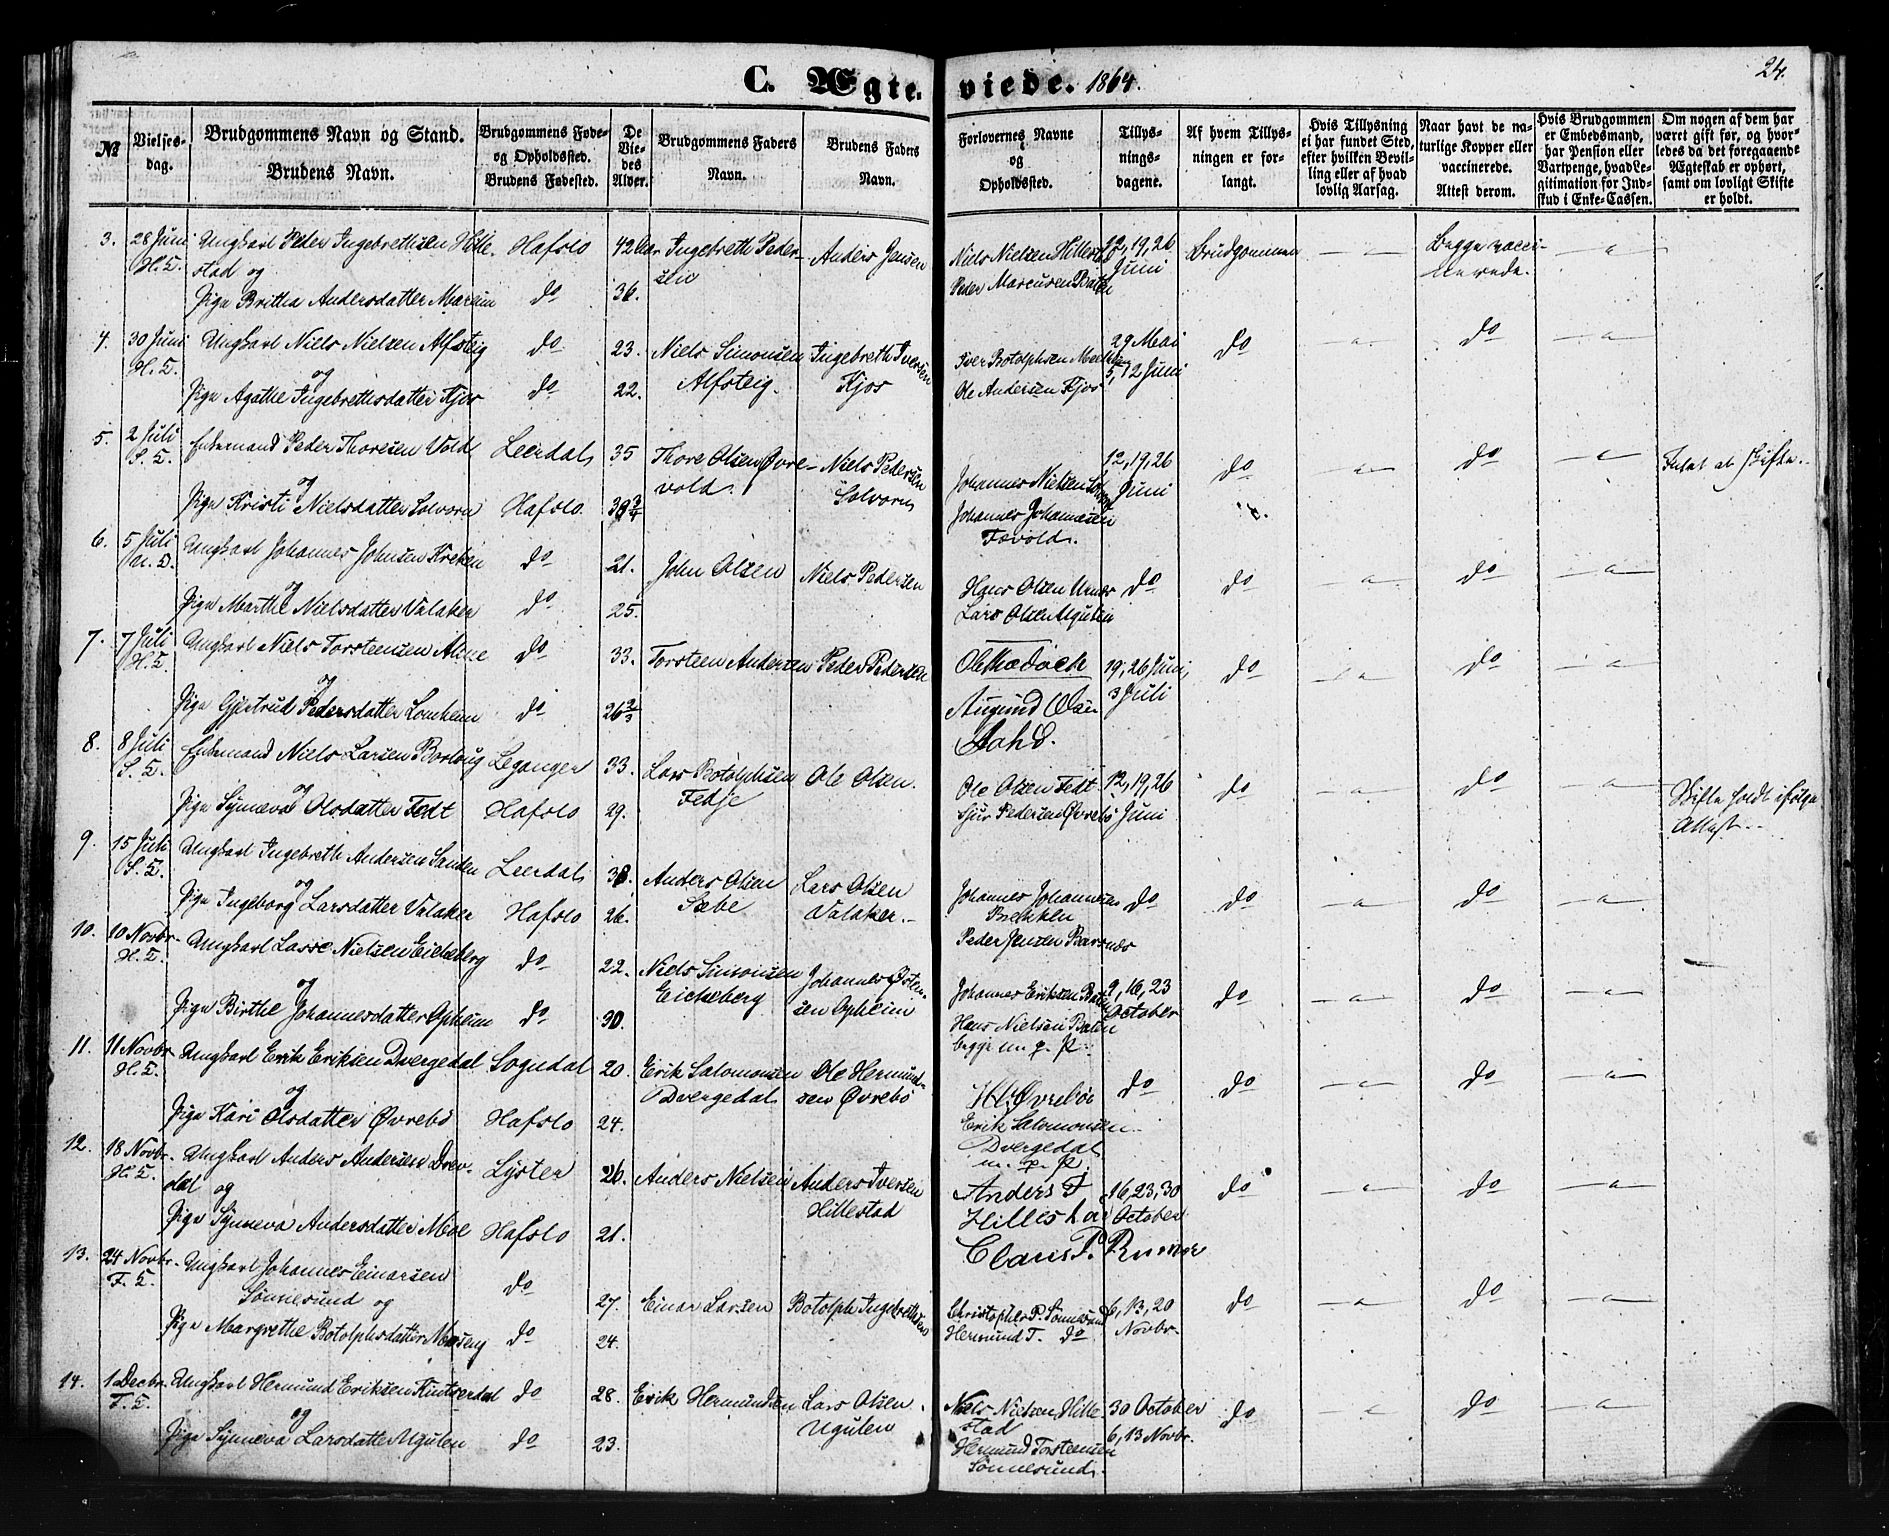 C. Ægteviede. 1864.
24.
№
Vielses-dag.
Brudgommens Navn og Stand.
Brudens Navn.
Brudgommens Føde- og Opholdssted.
Brudens Fødested.
De Viedes Alder.
Brudgommens Faders Navn.
Brudens Faders Navn.
Forlovernes Navne og Opholdssted.
Tillysningsdagene.
Af hvem Tillysningen er forlangt.
Hvis Tillysning ei har fundet Sted, efter hvilken Bevilling eller af hvad lovlig Aarsag.
Naar havt de naturlige Kopper eller vaccinerede. Attest derom.
Hvis Brudgommen er Embedsmand, har Pension eller Vartpenge, hvad Legitimation for Indskud i Enke-Cassen.
Om nogen af dem har været gift før, og hvorledes da det foregaaende Ægteskab er ophørt, samt om lovligt Skifte er holdt.
3. 28 Juni H. K. Ungkarl Peder Ingebrethsen Hille- Hafslo 42 Aar Ingebreth Peder- Anders Jensen Niels Nielsen Hillestad 12, 19, 26 Brudgommen Begge vacci-
stad og sen Juni nerede.
Pige Britha Andersdatter Marum do 36. Peder Marcusen Baten
4. 30 Juni H. K. Ungkarl Niels Nielsen Alfsteig do 23. Niels Simonsen Ingebreth Iversen Iver Botolphsen 29 Mai do do
og Alfsteig. Kjos 5, 12 Juni
Pige Agathe Ingebrethsdatter Kjos do 22. Ole Andersen Kjos
5. 2 Juli S. K. Enkemand Peder Thoresen Vold Leerdal 35 Thore Olsen Øvre- Niels Pedersen Johannes Nielsen 12, 19, 26 do do
og vold. Solvorn Juni
Pige Kristi Nielsdatter Solvorn Hafslo Johannes Johannesen
6. 5 Juli Ungkarl Johannes Johnsen Kreken do 21. John Olsen Niels Pedersen Hans Olsen Urnes do do do
og
Pige Marthe Nielsdatter Valaker do 25. Lars Olsen Ugulen
7. 7 Juli H. K. Ungkarl Niels Torsteensen Alme do 33. Torsteen Andersen Peder Pedersen 19, 26 Juni, do do
og 3 Juli
Pige Gjertrud Pedersdatter Lomheim do 26 2/3
8. 8 Juli S. K. Enkemand Niels Larsen Borlaug Leganger 33. Lars Botolphsen Ole Olsen. Ole Olsen Fedt 12, 19, 26 do do Skifte holdt ifølge
og Fedje Juni Attest.
Pige Synneva Olsdatter Fedt Hafslo 29. Sjur Pedersen Øvrebø
9. 15 Juli S. K. Ungkarl Ingebreth Andersen Sanden Leerdal 38. Anders Olsen Lars Olsen Johannes Johannesen do do do
og Sæbe Valaker. Brekken
Pige Ingeborg Larsdatter Valaker Hafslo 26. Peder Jensen Barsnes
10. 10 Novbr. H. K. Ungkarl Lasse Nielsen Eickeberg do 22. Niels Simonsen Johannes Østen- Johannes Eriksen 9, 16, 23 do do
og Eickeberg sen Opheim October
Pige Birthe Johannesdatter Opheim do 30. Hans Nielsen
begge m. p. P.
11. 11 Novbr. H. K. Ungkarl Erik Eriksen Dvergedal Sogndal 20. Erik Salomonsen Ole Hermund- H. Øvrebøe do do do
og Dvergedal sen Øvrebø
Pige Kari Olsdatter Øvrebø Hafslo 24. Erik Salomonsen
Dvergedal
m. p. P.
12. 18 Novbr. H. K. Ungkarl Anders Andersen Drev- Lyster 26. Anders Nielsen Anders Iversen Anders I 16, 23, 30 do do
dal og Hillestad Hillestad October
Pige Synneva Andersdatter Moe Hafslo 21.
13. 24 Novbr. F. K. Ungkarl Johannes Einarsen do 27. Einar Larsen Botolph Ingebrethsen Christopher P. Sønnesund 6, 13, 20 do do
Sønnesund og Novbr.
Pige Margrethe Botolphsdatter do 24. Hermund T. do
14. 1 Decbr. F. K. Ungkarl Hermund Eriksen do 28. Erik Hermundsen Lars Olsen Niels Nielsen Hille- 30 October do do
og Ugulen stad 6, 13 Novbr.
Pige Synneva Larsdatter Ugulen do 23. Hermund Torsteensen
Sønnesund.